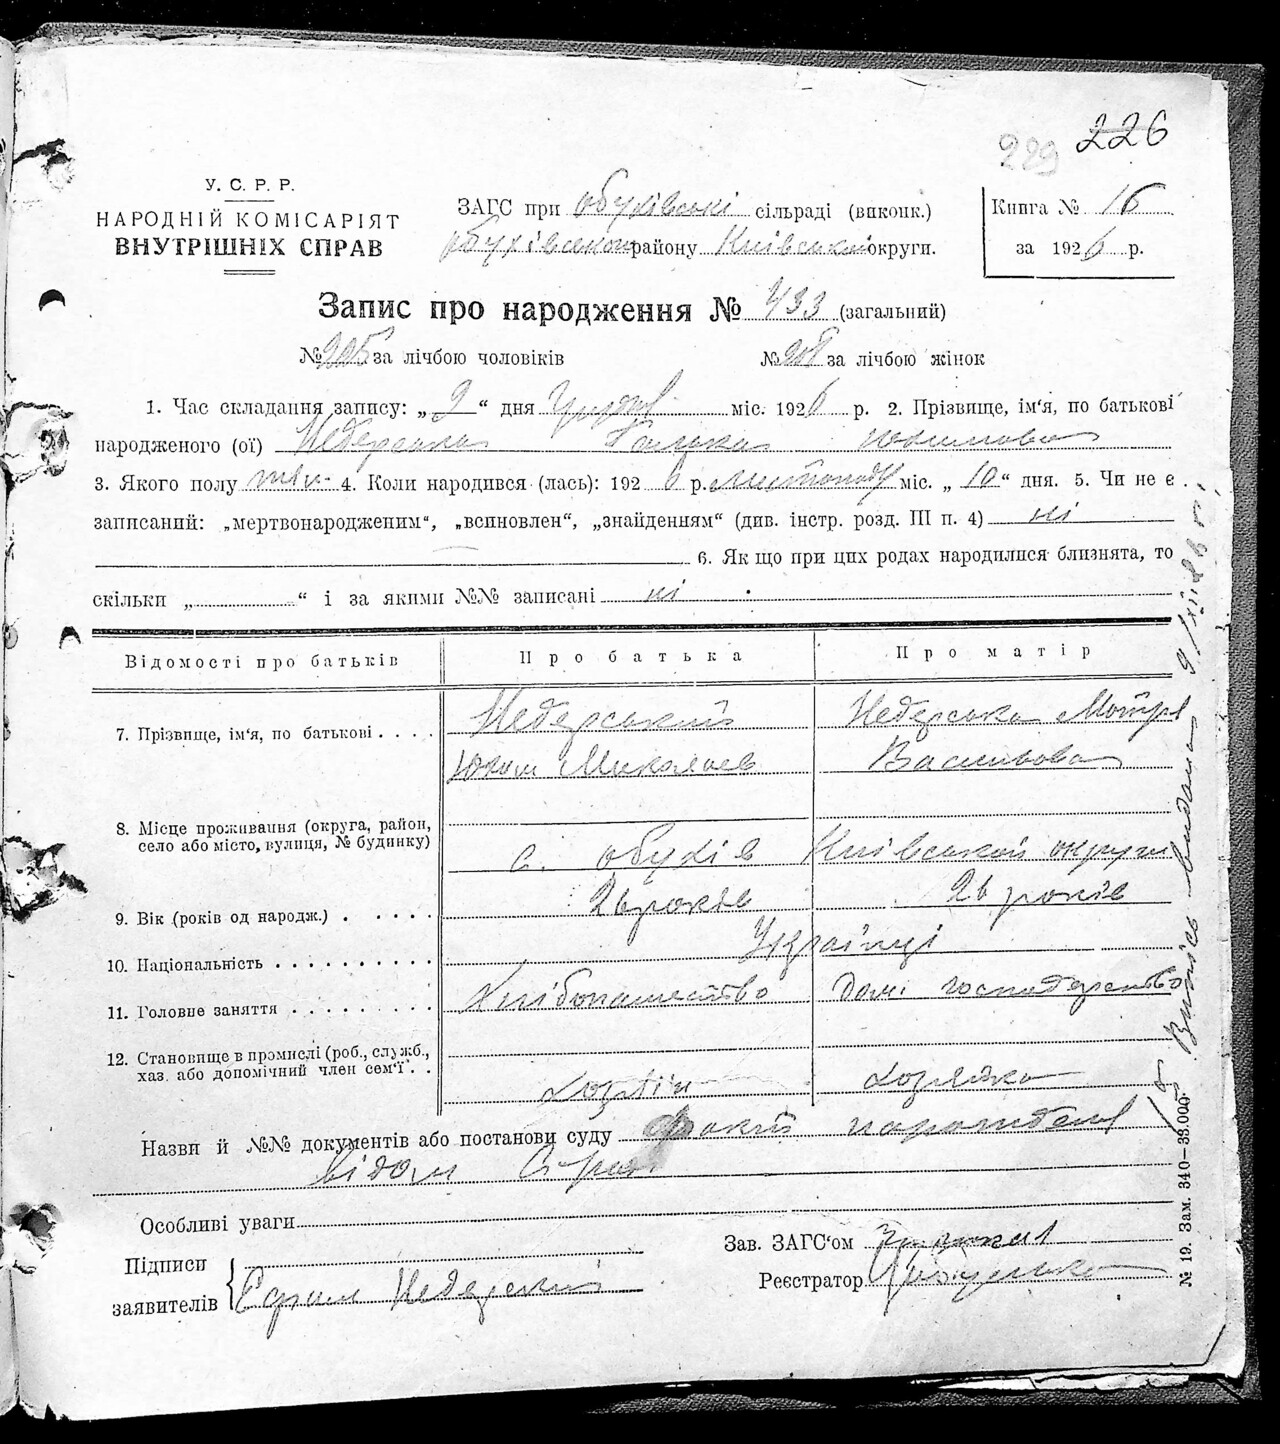 229 226
У. С. Р. Р.
НАРОДНІЙ КОМІСАРІЯТ
ВНУТРІШНІХ СПРАВ
ЗАГС при обухівські сільраді (виконк.)
району Київської округи.
Книга № 16
за 1926 р.
Запис про народження № 433 (загальний)
№ 205 за лічбою чоловіків № за лічбою жінок
1. Час складання запису: „ 9 “ дня міс. 1926 р. 2. Прізвище, ім‘я, по батькові
народженого (ої) Недерська
3. Якого полу жін. 4. Коли народився (лась): 1926 р. листопаду міс. „ 10 “ дня. 5. Чи не є
записаний: „мертвонародженим“, „всиновлен“, „знайденням“ (див. інстр. розд. III п. 4) ні
6. Як що при цих родах народилися близнята, то
скільки „ “ і за якими №№ записані ні
Відомості про батьків Про батька Про матір
7. Прізвище, ім‘я, по батькові . . . . Недерський Недерська Мотря
Юхим Миколаєв Васильова
8. Місце проживання (округа, район,
село або місто, вулиця, № будинку) с. обухів Київської округи
9. Вік (років од народж.) . . . . . 26 років 26 років
10. Національність . . . . . . . . . . Українці
11. Головне заняття . . . . . . . . . Хлібопашество Домі господарство
12. Становище в промислі (роб., служб.,
хаз. або допомічний член сем‘ї . . хозяїн хозяйка
Назви й №№ документів або постанови суду
відом
Особливі уваги
Підписи
заявителів Недерский
Зав. ЗАГС‘ом
Реєстратор
Випись видана 9/XII
№ 19. Зам. 340—33.000.